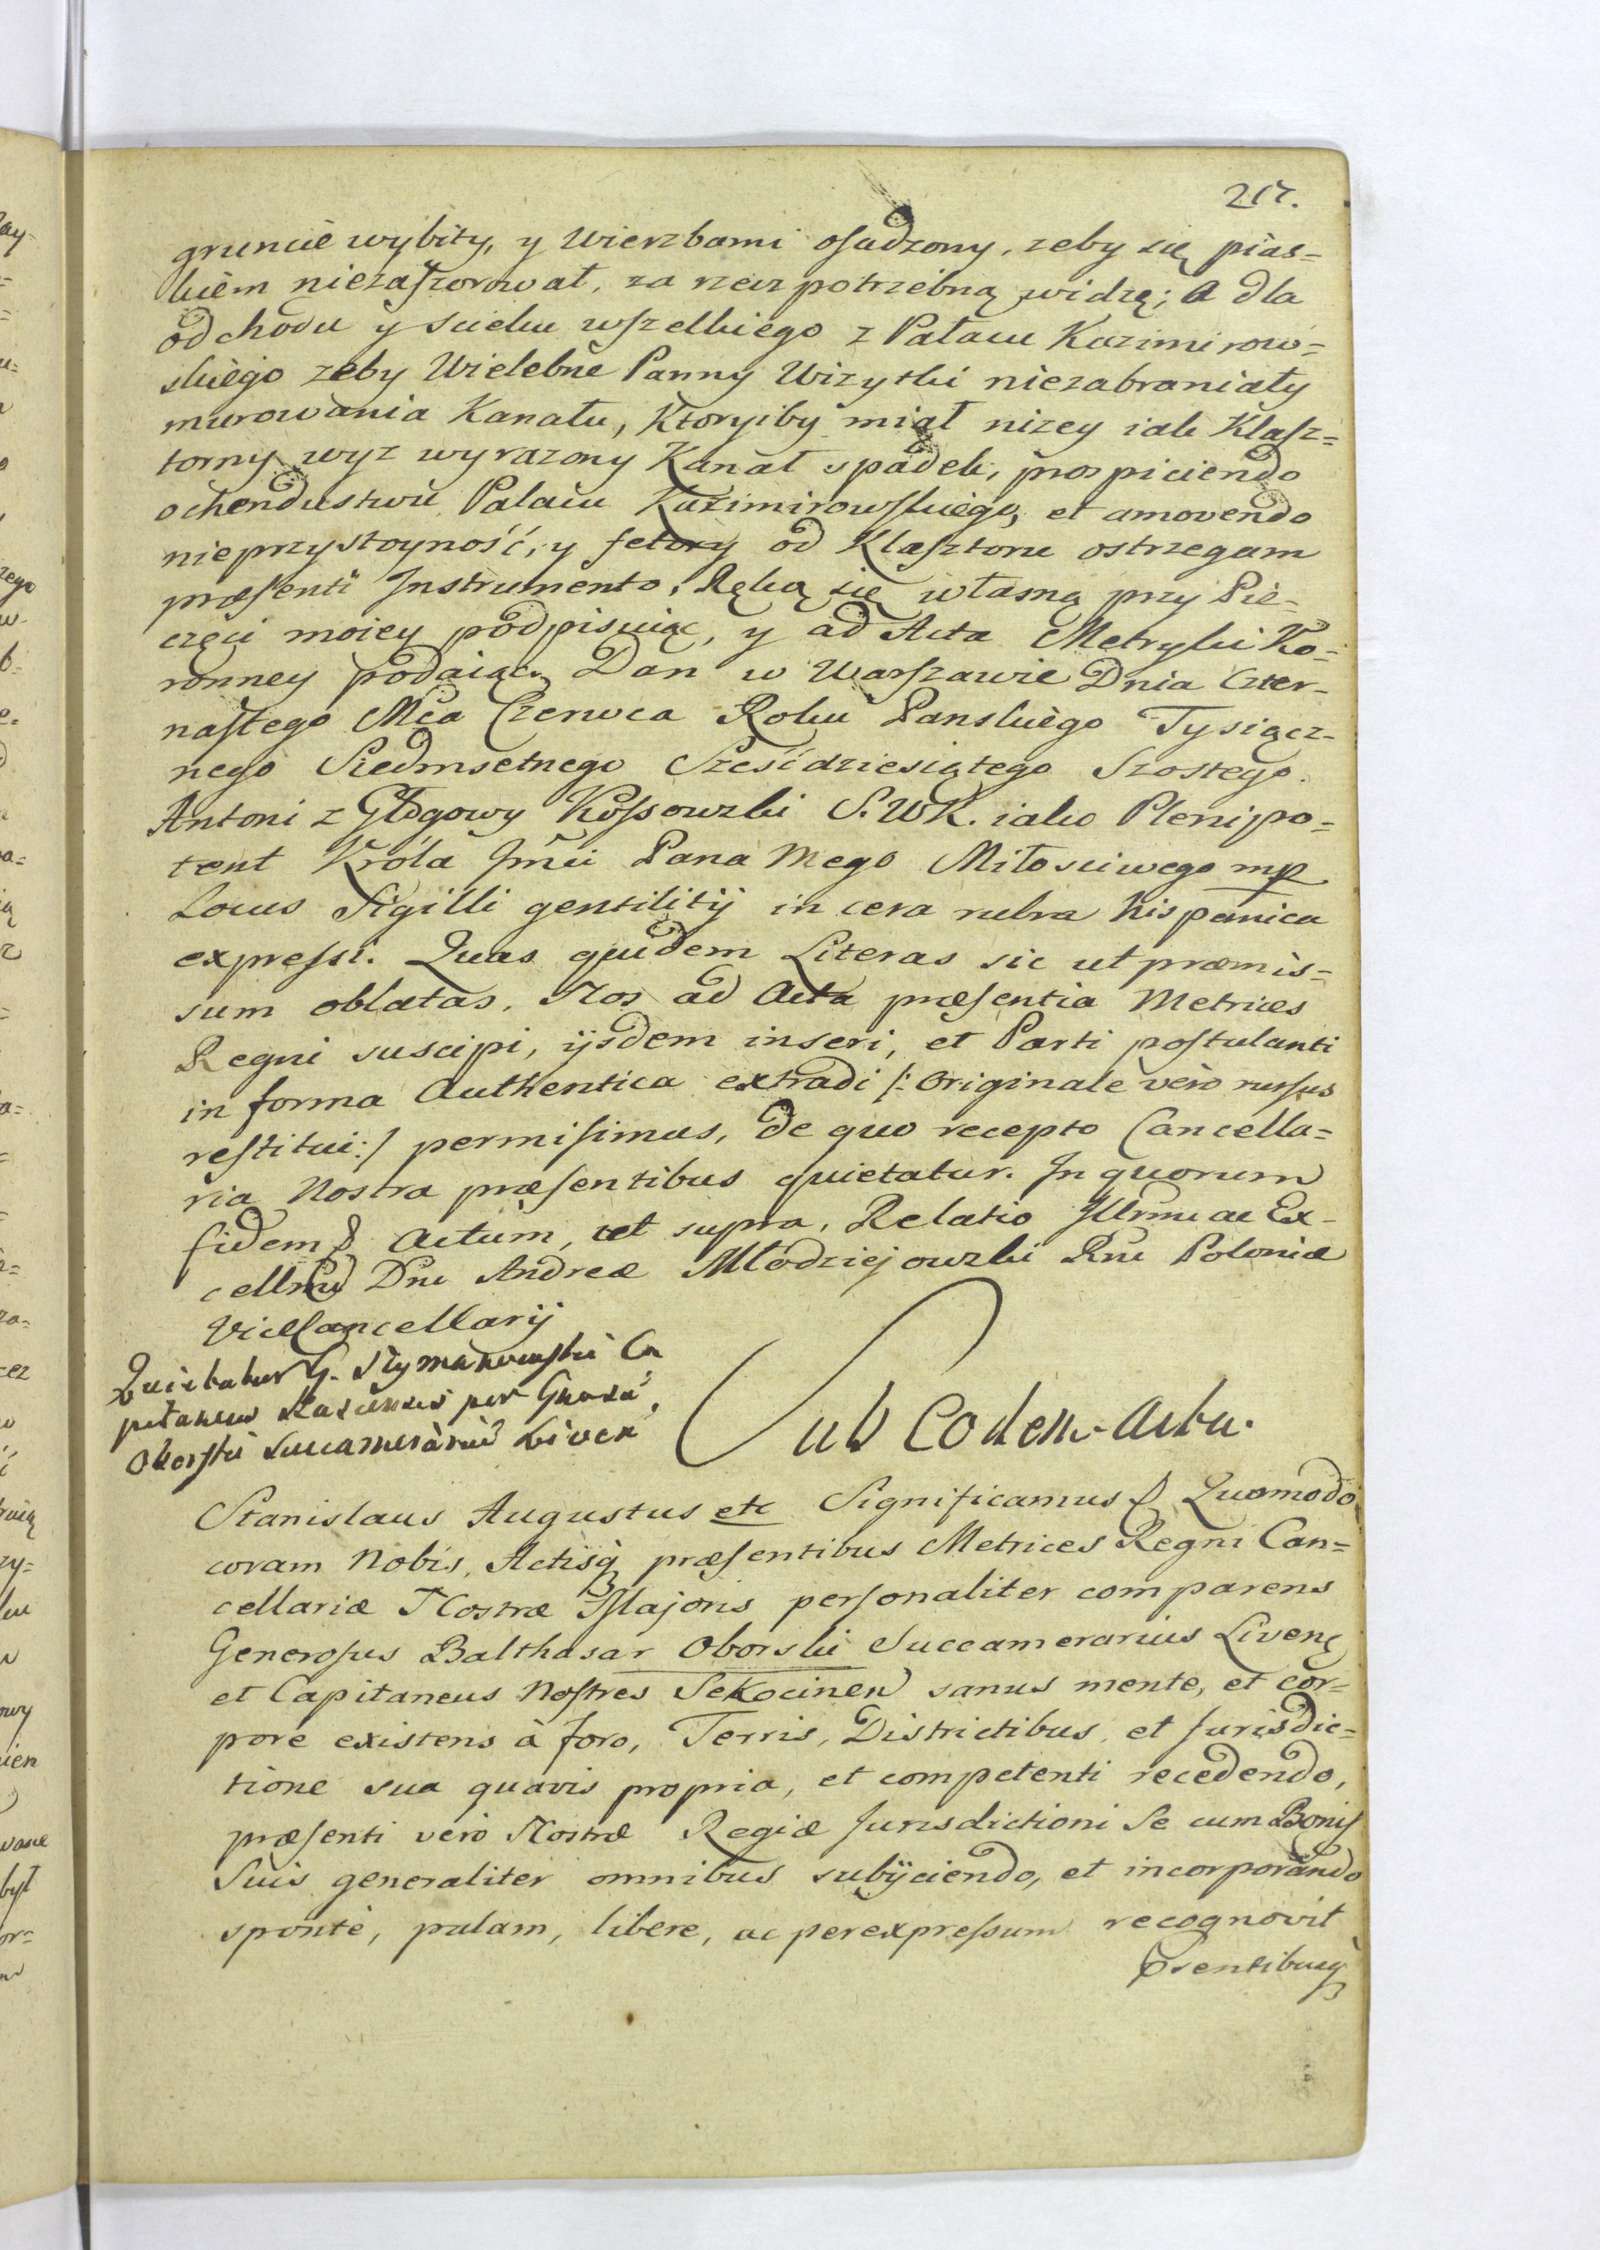 217.
gruncie wybity, y Wierzbami osadzony, zeby się pias=
kiem niezaszorował, za rzecz potrzebną widzę; A dla
odchodu y scieku wszelkiego z Pałacu Kazimirow=
skiego zeby Wielebne Panny Wizytki niezabraniały
murowania Kanału, Ktoryiby miał nizey iak Klasz=
torny wyz wyrazony Kanał spadek, prospiciendo
ochendustwu Pałacu Kazimirowskiego, et amovendo
nieprzystoyność, y fetory od Klasztoru ostrzegam
præsenti Instrumento, Ręką się własną przy Pie=
częci moiey podpisuiąc, y ad Acta Metryki Ko=
ronney podaiąc. Dan w Warszawie Dnia Czter=
nastego Mca Czerwca Roku Panskiego Tysiącz=
nego Siedmsetnego Sześćdziesiątego Szostego.
Antoni z Głogowy Kossowzki S.WK. iako Plenipo=
tent Króla Jmci Pana Mego Miłosciwego mp
Locus Sigilli gentilitij in cera rubra hispanica
expressi. Quas quidem Literas sic ut præmis=
sum oblatas, Nos ad Acta præsentia Metrices
Regni suscipi, ijsdem inseri, et Parti postulanti
in forma Authentica extradi /: Originale vèro rursus
restitui:/ permisimus, de quo recepto Cancella=
ria Nostra præsentibus quietatur. In quorum
fidem & Actum, ut supra, Relatio Illrmi ac Ex=
cellmi Dni Andreæ Młodziejowzki Rni Poloniæ
ViceCancellarij
Quietatur G. Szymanowski Ca
pitaneus Raciensis per Gnosū
Oborski Succamerariū Liven
Sub Eodem Actu.
Stanislaus Augustus etc Significamus & Quomodo
coram Nobis, Actisq̀ præsentibus Metrices Regni Can=
cellariæ Nostræ Majoris personaliter comparens
Generosus Balthasar Oborski Succamerarius Liven
et Capitaneus Nostres Sekocinen sanus mente, et cor=
pore existens à foro, Terris, Districtibus, et Jurisdic=
tione sua quavis propria, et competenti recedendo,
præsenti verò Nostræ Regiæ Jurisdictioni Se cum Bonis
Suis generaliter omnibus subijciendo, et incorporando
sponte, palam, libere, ac perexpressum recognovit
Psentibusq̀